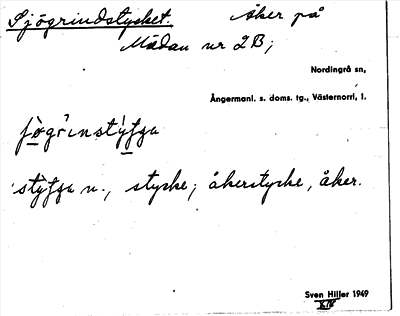 Sjögrindstycket. Åker på
Mädan nr 2B;
Nordingrå sn,
Ångermanl. s. doms. tg., Västernorrl, l.
'stỳʃɡa n., stycke; åkerstycke, åker.
Sven Hiller 1949